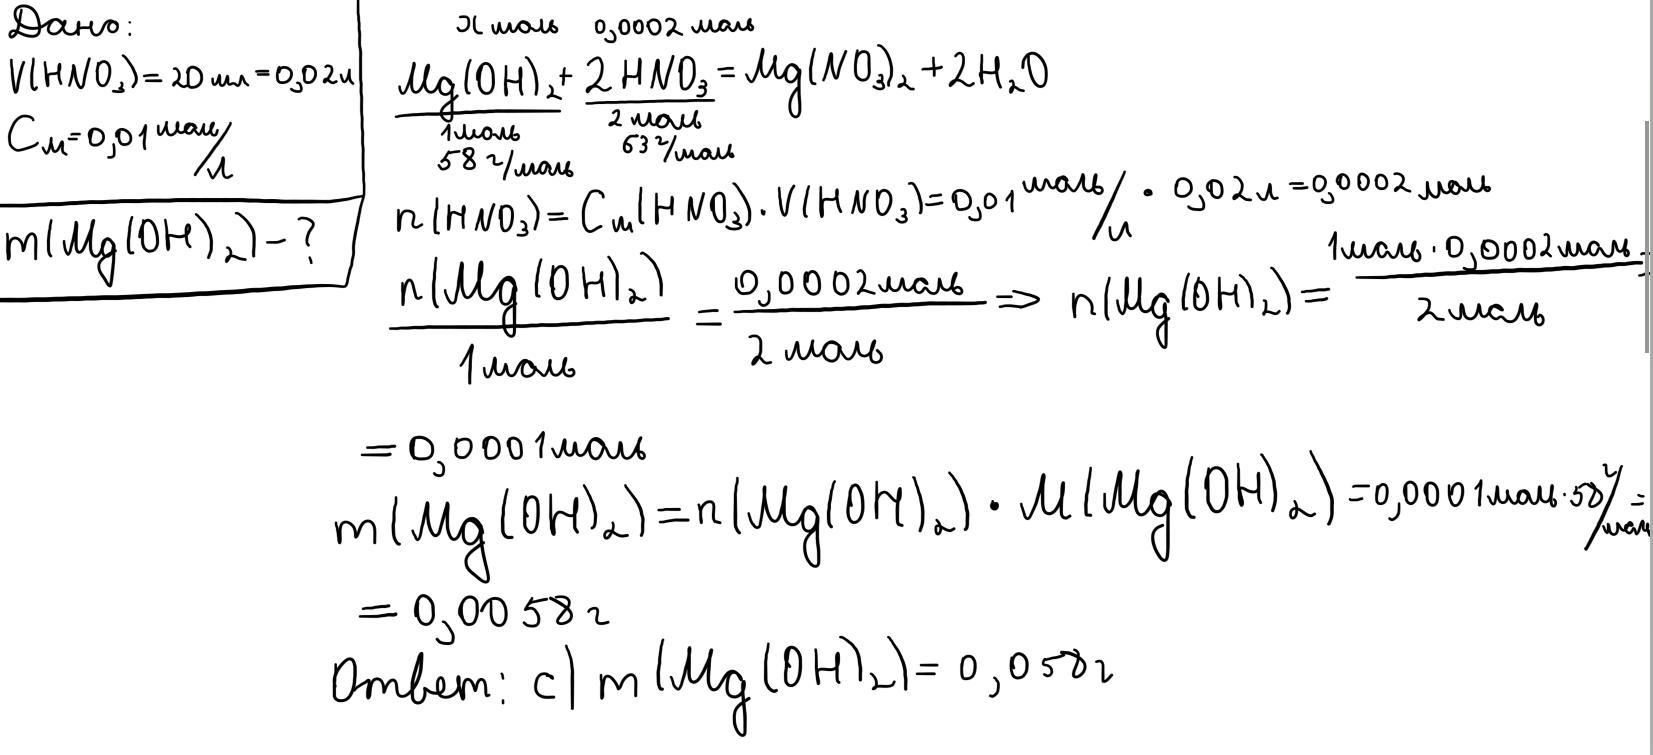 Дано:
V(HNO₃)=20мл=0,02л
Cм=0,01моль/л
m(Mg(OH)₂)-?
x моль 0,0002 моль
Mg(OH)₂+2HNO₃=Mg(NO₃)₂+2H₂O
1моль 2 моль
58г/моль 63г/моль
n(HNO₃)=Cм(HNO₃)·V(HNO₃)=0,01моль/л·0,02л=0,0002 моль
n(Mg(OH)₂)/1моль=0,0002моль/2 моль⇒n(Mg(OH)₂)=1моль·0,0002моль/2моль=
=0,0001моль
m(Mg(OH)₂)=n(Mg(OH)₂)·M(Mg(OH)₂)=0,0001моль·58г/моль=
=0,0058г
Ответ: c) m(Mg(OH)₂)=0,058г